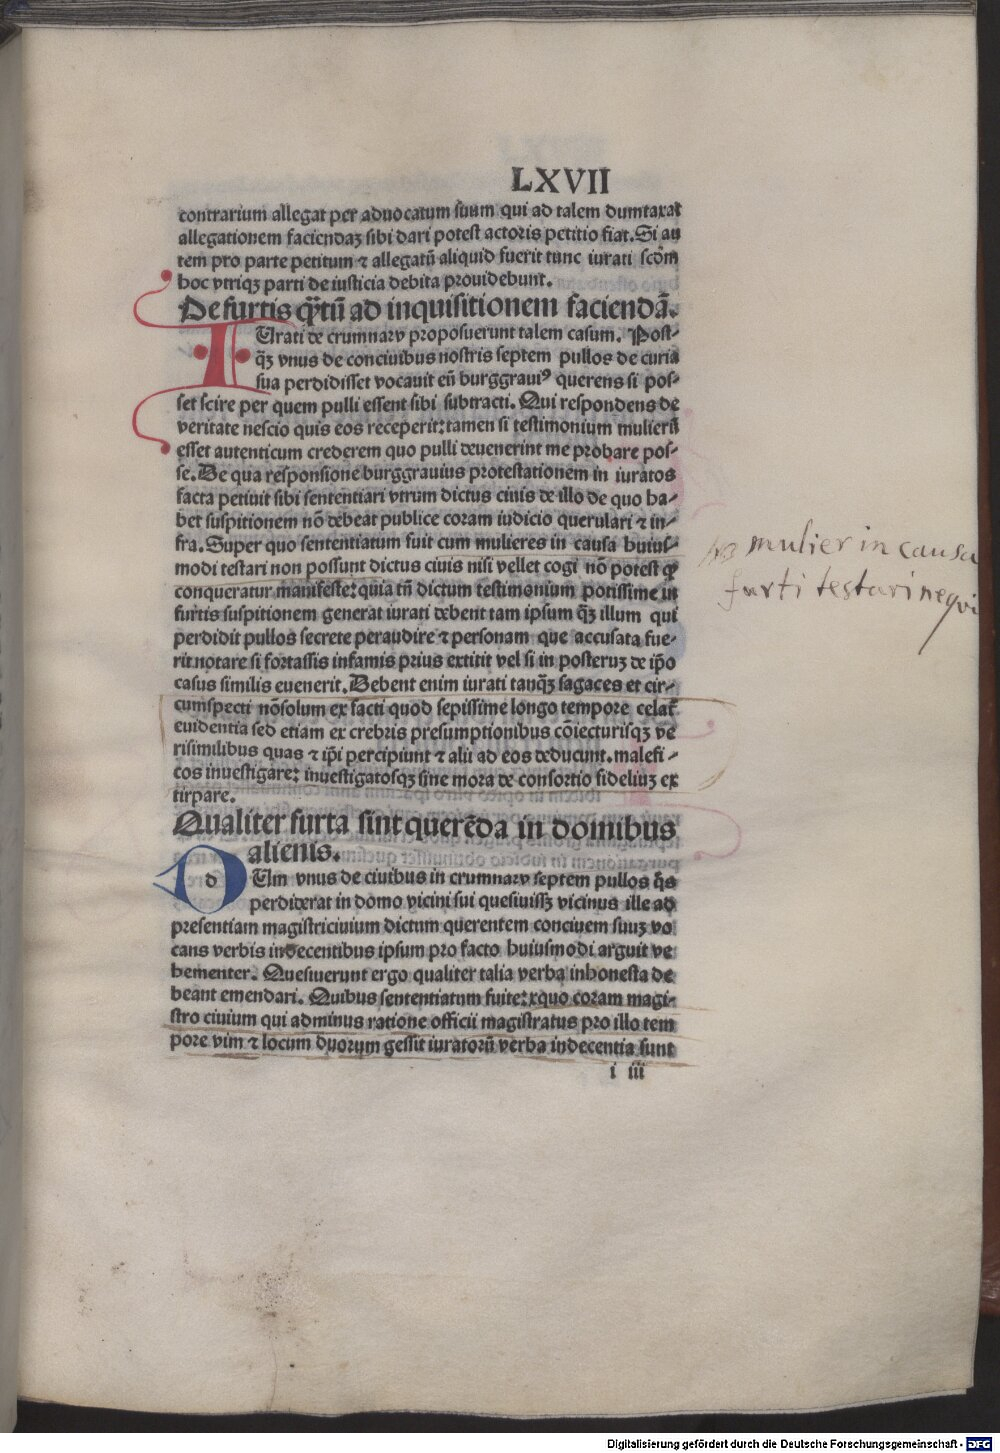 LXVII
contrarium allegat per aduocatum suum qui ad talem dumtaxat
allegationem faciendaꝫ sibi dari potest actoris petitio fiat. Si au
tem pro parte petitum ⁊ allegatū aliquid fuerit tunc iurati scd̄m
hoc vtriqꝫ parti de iusticia debita prouidebunt.
De furtis qͣtū ad inquisitionem faciendā.
IUrati de crumnaw proposuerunt talem casum. Post⸗
qͣꝫ vnus de conciuibus nostris septem pullos de curia
sua perdidisset vocauit eū burggrauiꝰ querens si pos⸗
set scire per quem pulli essent sibi subtracti. Qui respondens de
veritate nescio quis eos receperit: tamen si testimonium mulierū
esset autenticum crederem quo pulli deuenerint me probare pos⸗
se. De qua responsione burggrauius protestationem in iuratos
facta petiuit sibi sententiari vtrum dictus ciuis de illo de quo ha⸗
bet suspitionem nō debeat publice coram iudicio querulari ⁊ in⸗
fra. Super quo sententiatum fuit cum mulieres in causa huius⸗
modi testari non possunt dictus ciuis nisi vellet cogi nō potest ꝙ
conqueratur manifeste: quia tn̄ dictum testimonium potissime in
furtis suspitionem generat iurati debent tam ipsum qͣꝫ illum qui
perdidit pullos secrete peraudire ⁊ personam que accusata fue⸗
rit notare si fortassis infamis prius extitit vel si in posteruꝫ de ip̄o
casus similis euenerit. Debent enim iurati tanqͣꝫ sagaces et cir⸗
cumspecti nōsolum ex facti quod sepissime longo tempore celat᷑
euidentia sed etiam ex crebris presumptionibus cōiecturisqꝫ ve
risimilibus quas ⁊ ip̄i percipiunt ⁊ alii ad eos deducunt. malefi⸗
cos inuestigare: inuestigatosqꝫ sine mora de consortio fideliuꝫ ex
tirpare.
Qualiter furta sint querēda in domibus
alienis.
dUm vnus de ciuibus in crumnaw septem pullos qͦs
perdiderat in domo vicini sui quesiuissꝫ vicinus ille ad
presentiam magistriciuium dictum querentem conciuem suuꝫ vo
cans verbis indecentibus ipsum pro facto huiusmodi arguit ve
hementer. Quesiuerunt ergo qualiter talia verba inhonesta de
beant emendari. Quibus sententiatum fuit: exquo coram magi⸗
stro ciuium qui adminus ratione officii magistratus pro illo tem
pore vim ⁊ locum duorum gessit iuratorū verba indecentia sunt
i iii
mulier in causa
furti testari nequi
Digitalisierung gefördert durch die Deutsche Forschungsgemeinschaft - DFG